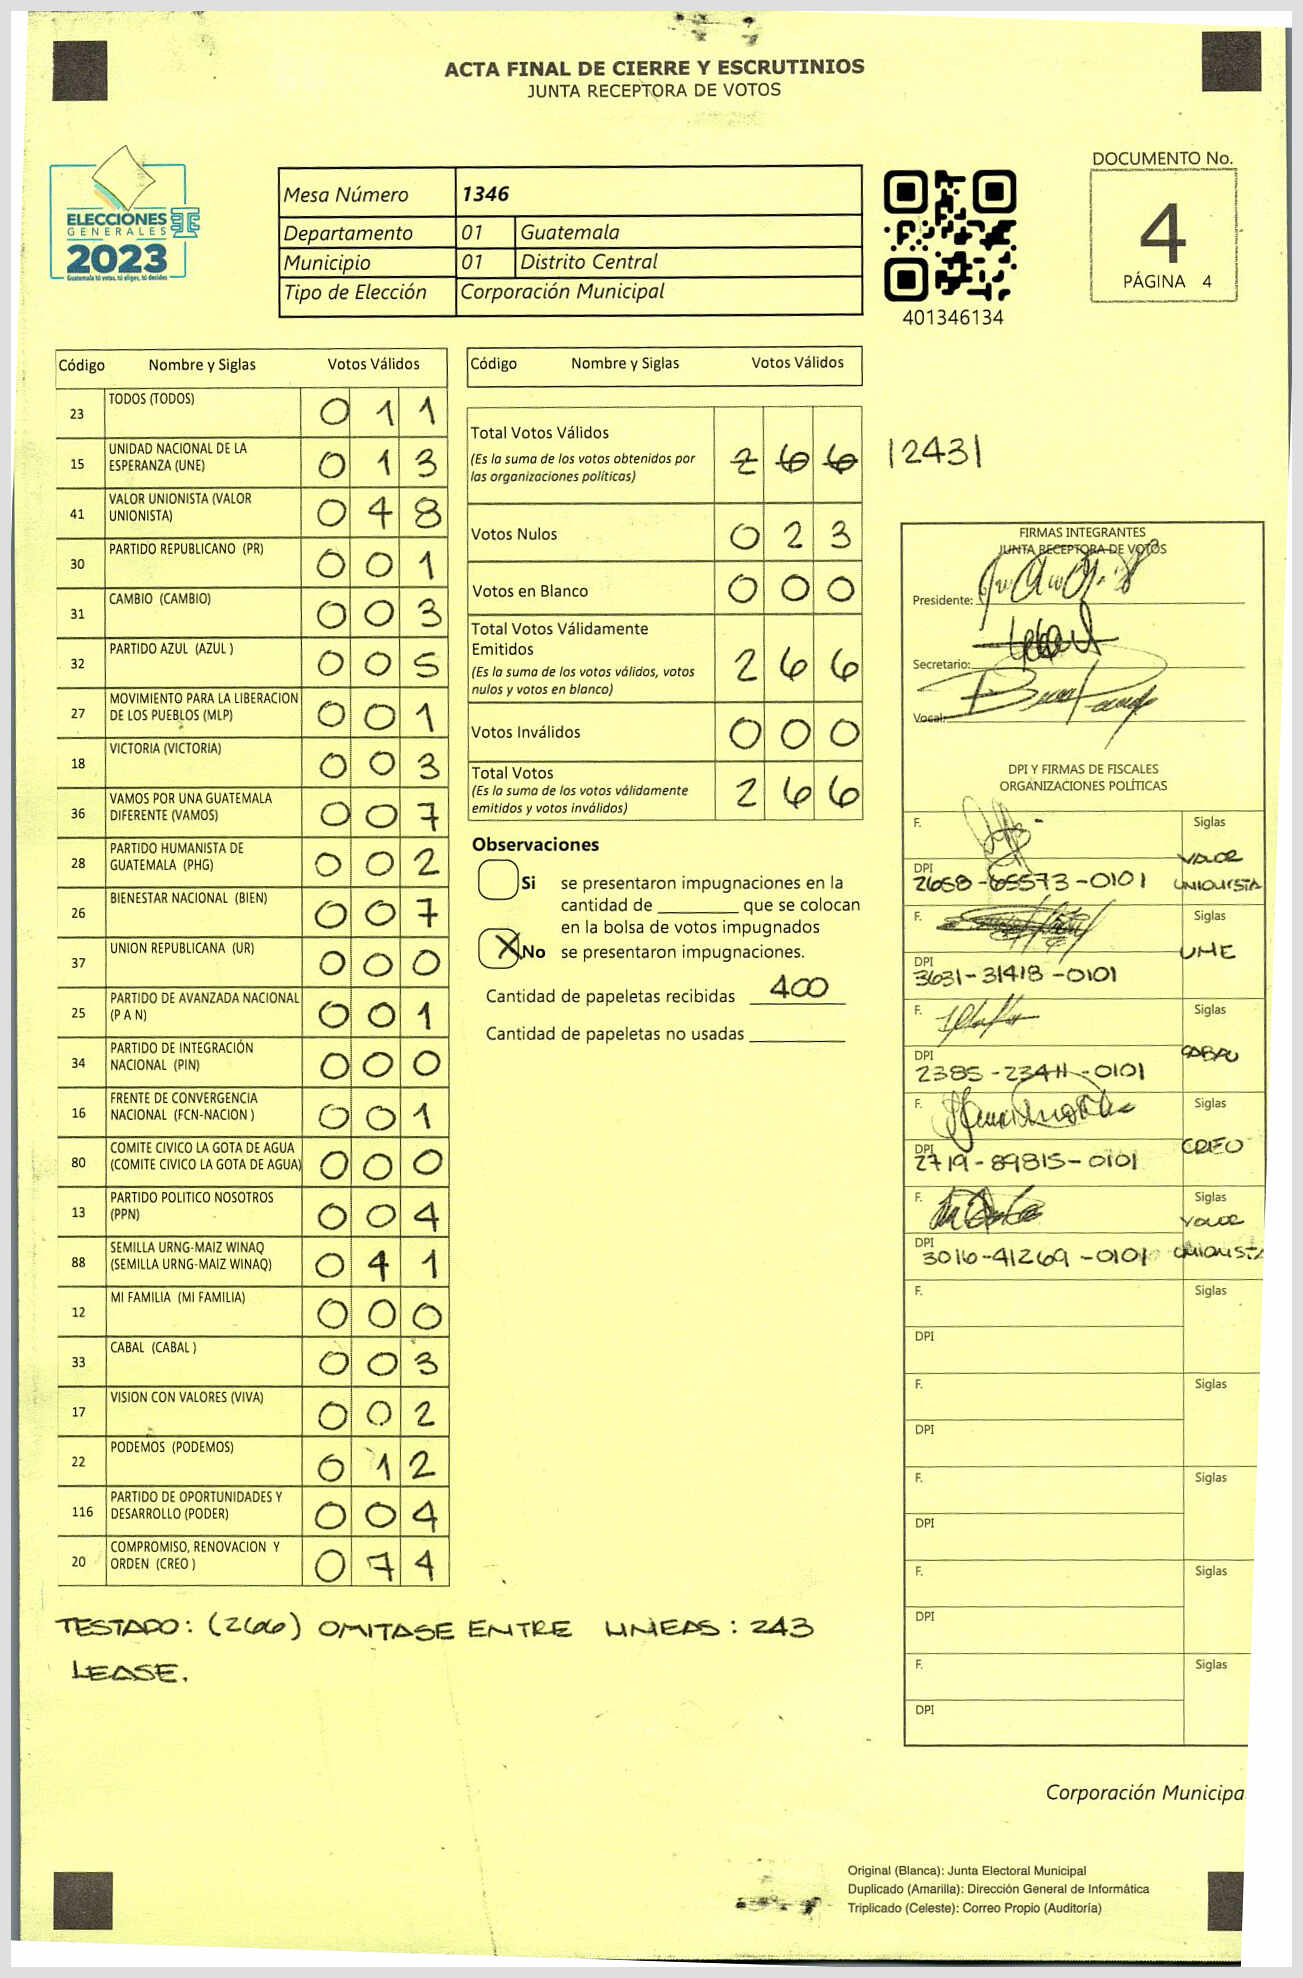 ACTA FINAL DE CIERRE Y ESCRUTINIOS
JUNTA RECEPTORA DE VOTOS
ELECCIONES
GENERALES
2023
Guatemala tú votas, tú eliges, tú decides
Mesa Número 1346
Departamento 01 Guatemala
Municipio 01 Distrito Central
Tipo de Elección Corporación Municipal
401346134
DOCUMENTO No.
4
PÁGINA 4
Código Nombre y Siglas Votos Válidos
23 TODOS (TODOS) 0 1 1
15 UNIDAD NACIONAL DE LA ESPERANZA (UNE) 0 1 3
41 VALOR UNIONISTA (VALOR UNIONISTA) 0 4 8
30 PARTIDO REPUBLICANO (PR) 0 0 1
31 CAMBIO (CAMBIO) 0 0 3
32 PARTIDO AZUL (AZUL ) 0 0 5
27 MOVIMIENTO PARA LA LIBERACION DE LOS PUEBLOS (MLP) 0 0 1
18 VICTORIA (VICTORIA) 0 0 3
36 VAMOS POR UNA GUATEMALA DIFERENTE (VAMOS) 0 0 7
28 PARTIDO HUMANISTA DE GUATEMALA (PHG) 0 0 2
26 BIENESTAR NACIONAL (BIEN) 0 0 7
37 UNION REPUBLICANA (UR) 0 0 0
25 PARTIDO DE AVANZADA NACIONAL (P A N) 0 0 1
34 PARTIDO DE INTEGRACIÓN NACIONAL (PIN) 0 0 0
16 FRENTE DE CONVERGENCIA NACIONAL (FCN-NACION ) 0 0 1
80 COMITE CIVICO LA GOTA DE AGUA (COMITE CIVICO LA GOTA DE AGUA) 0 0 0
13 PARTIDO POLITICO NOSOTROS (PPN) 0 0 4
88 SEMILLA URNG-MAIZ WINAQ (SEMILLA URNG-MAIZ WINAQ) 0 4 1
12 MI FAMILIA (MI FAMILIA) 0 0 0
33 CABAL (CABAL ) 0 0 3
17 VISION CON VALORES (VIVA) 0 0 2
22 PODEMOS (PODEMOS) 0 1 2
116 PARTIDO DE OPORTUNIDADES Y DESARROLLO (PODER) 0 0 4
20 COMPROMISO, RENOVACION Y ORDEN (CREO ) 0 7 4
TESTADO: (266) OMITASE ENTRE LINEAS: 243
LEASE.
Código Nombre y Siglas Votos Válidos
Total Votos Válidos 2 6 6 |243|
(Es la suma de los votos obtenidos por
las organizaciones políticas)
Votos Nulos 0 2 3
Votos en Blanco 0 0 0
Total Votos Válidamente
Emitidos 2 6 6
(Es la suma de los votos válidos, votos
nulos y votos en blanco)
Votos Inválidos 0 0 0
Total Votos 2 6 6
(Es la suma de los votos válidamente
emitidos y votos inválidos)
Observaciones
Si se presentaron impugnaciones en la
cantidad de ________ que se colocan
en la bolsa de votos impugnados
X No se presentaron impugnaciones.
Cantidad de papeletas recibidas 400
Cantidad de papeletas no usadas
FIRMAS INTEGRANTES
JUNTA RECEPTORA DE VOTOS
Presidente:
Secretario:
Vocal:
DPI Y FIRMAS DE FISCALES
ORGANIZACIONES POLÍTICAS
F. Siglas
VALOR
DPI
2658-65573-0101 UNIONISTA
F. Siglas
UNE
DPI
3631-31418-0101
F. Siglas
CABAL
DPI
2385-23411-0101
F. Siglas
CREO
DPI
2719-89815-0101
F. Siglas
VALOR
DPI
3016-41269-0101 UNIONISTA
F. Siglas
DPI
F. Siglas
DPI
F. Siglas
DPI
F. Siglas
DPI
F. Siglas
DPI
Corporación Municipa
Original (Blanca): Junta Electoral Municipal
Duplicado (Amarilla): Dirección General de Informática
Triplicado (Celeste): Correo Propio (Auditoría)